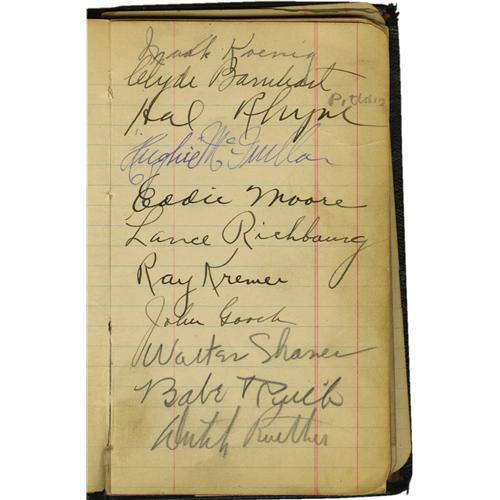 Mark Koenig
Clyde Barnhart
Hal Rhyne
"Hughie" McQuillan
Eddie Moore
Lance Richbourg
Ray Kremer
John Gooch
Walter Shaner
Babe Ruth
Dutch Ruether